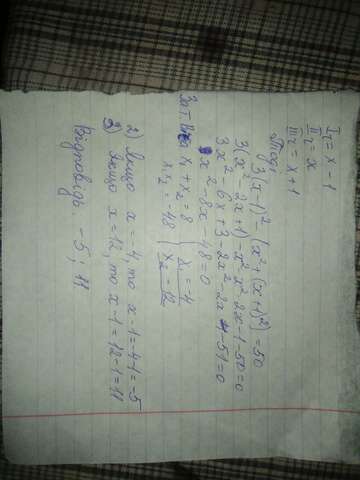 I г = x - 1
II г = x
III г = x + 1
тоді
3(x - 1)² - (x² + (x + 1)²) = 50
3(x² - 2x + 1) - x² x² 2x - 1 - 50 = 0
3x² 6x + 3 - 2x² - 2x - 51 = 0
x² - 8x - 48 = 0
x₁ + x₂ = 8 { x₁ = -4
x₁x₂ = -48 { x₂ = 12
2) Якщо x = -4, то x - 1 = 4 - 1 = -5
Якщо x = 12, то x - 1 = 12 - 1 = 11
Відповідь: -5; 11